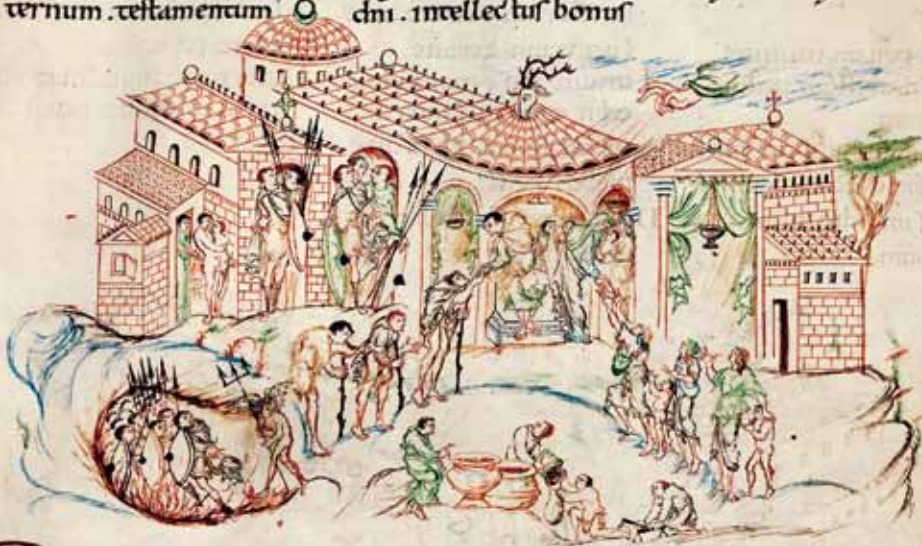 ternum . testamentum
dni . intellectus bonus